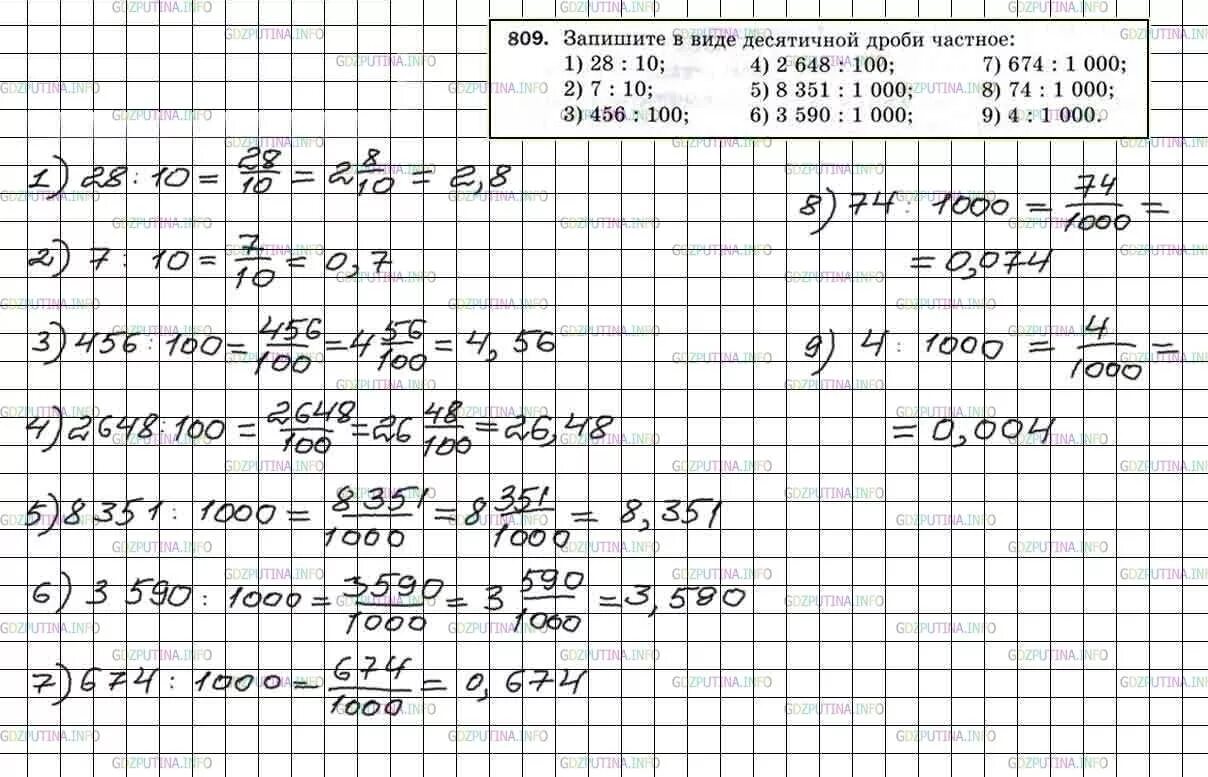 809. Запишите в виде десятичной дроби частное:
1) 28 : 10; 4) 2 648 : 100; 7) 674 : 1 000;
2) 7 : 10; 5) 8 351 : 1 000; 8) 74 : 1 000;
3) 456 : 100; 6) 3 590 : 1 000; 9) 4 : 1 000.
1) 28 : 10 = 28/10 = 2 8/10 = 2,8
2) 7 : 10 = 7/10 = 0,7
3) 456 : 100 = 456/100 = 4 56/100 = 4,56
4) 2648 : 100 = 2648/100 = 26 48/100 = 26,48
5) 8 351 : 1000 = 8 351/1000 = 8 351/1000 = 8,351
6) 3 590 : 1000 = 3590/1000 = 3 590/1000 = 3,590
7) 674 : 1000 = 674/1000 = 0,674
8) 74 : 1000 = 74/1000 =
= 0,074
9) 4 : 1000 = 4/1000 =
= 0,004
GDZPUTINA.INFO